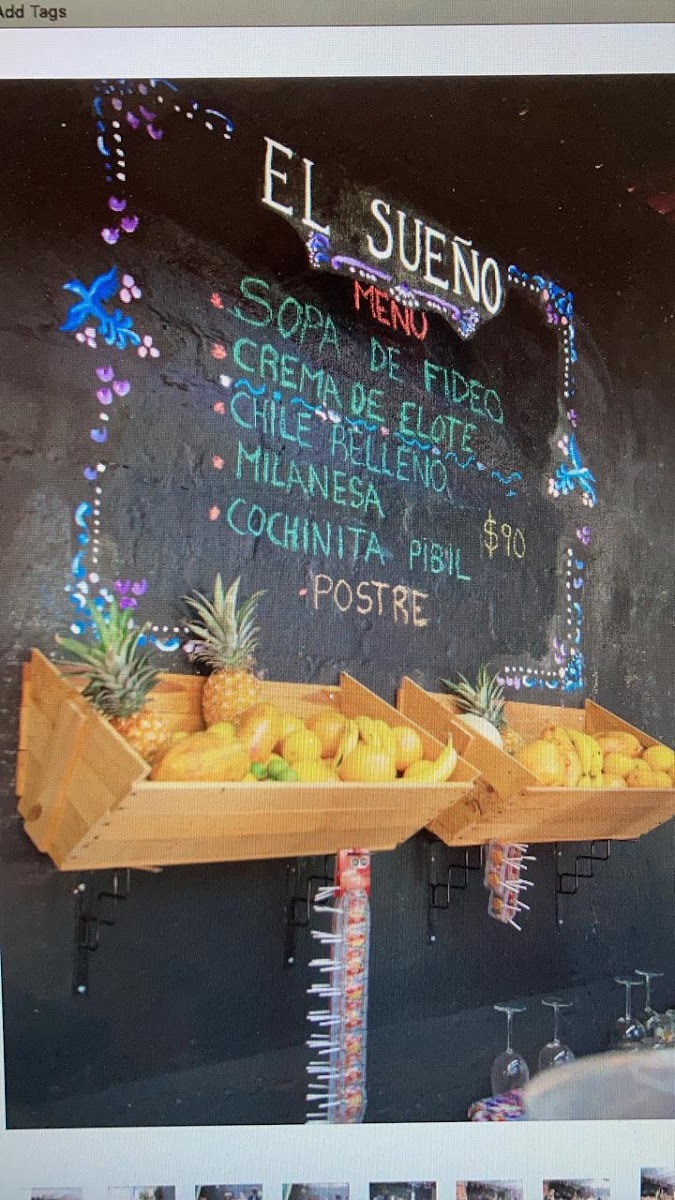 Add Tags
EL SUEÑO
MENU
SOPA DE FIDEO
CREMA DE ELOTE
CHILE RELLENO
MILANESA
$90
COCHINITA PIBIL
POSTRE